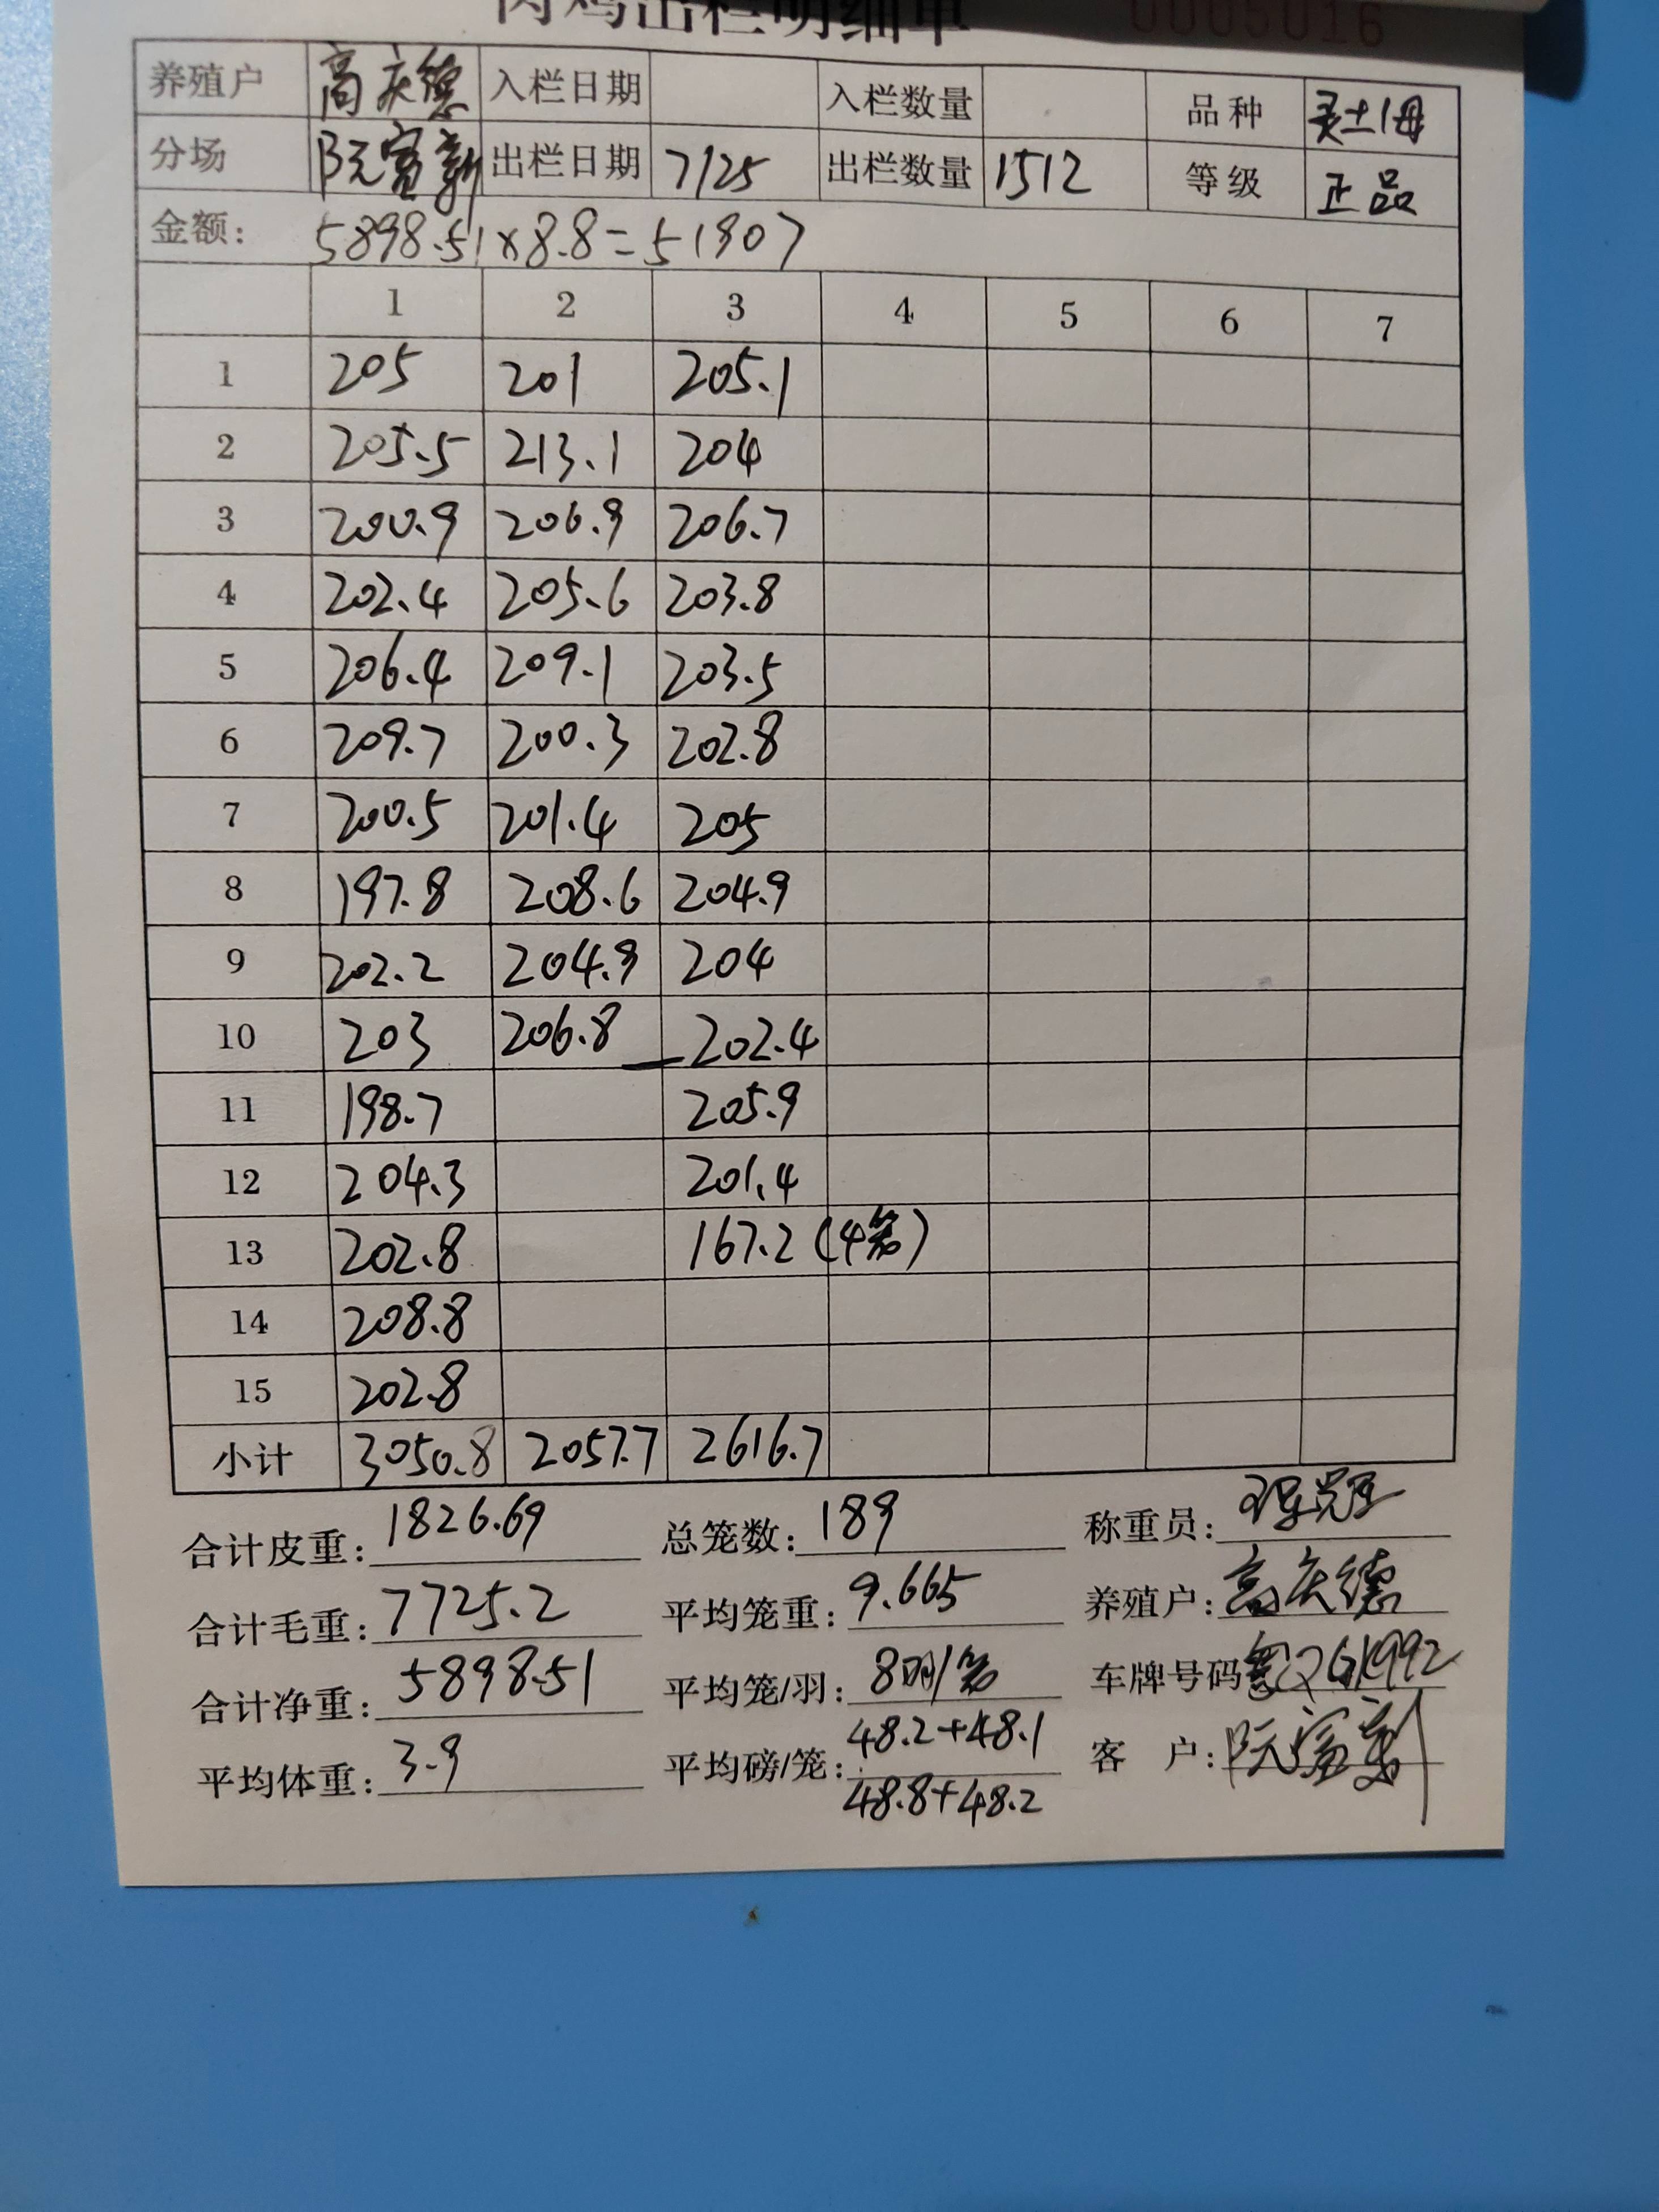 肉鸡出栏明细单 0005016
养殖户 高庆德 入栏日期 入栏数量 品种 灵土1母
分场 阮富新 出栏日期 7/25 出栏数量 1512 等级 正品
金额: 5898.51×8.8=51907
1 2 3 4 5 6 7
1 205 201 205.1
2 205.5 213.1 204
3 200.9 206.9 206.7
4 202.4 205.6 203.8
5 206.4 209.1 203.5
6 209.7 200.3 202.8
7 200.5 201.4 205
8 197.8 208.6 204.9
9 202.2 204.9 204
10 203 206.8 202.4
11 198.7 205.9
12 204.3 201.4
13 202.8 167.2(4笼)
14 208.8
15 202.8
小计 3050.8 2057.7 2616.7
合计皮重: 1826.69 总笼数: 189 称重员:
合计毛重: 7725.2 平均笼重: 9.665 养殖户: 高庆德
合计净重: 5898.51 平均笼/羽: 8羽/笼 车牌号码
平均体重: 3.9 平均磅/笼: 48.2+48.1 客 户: 阮富新
48.8+48.2